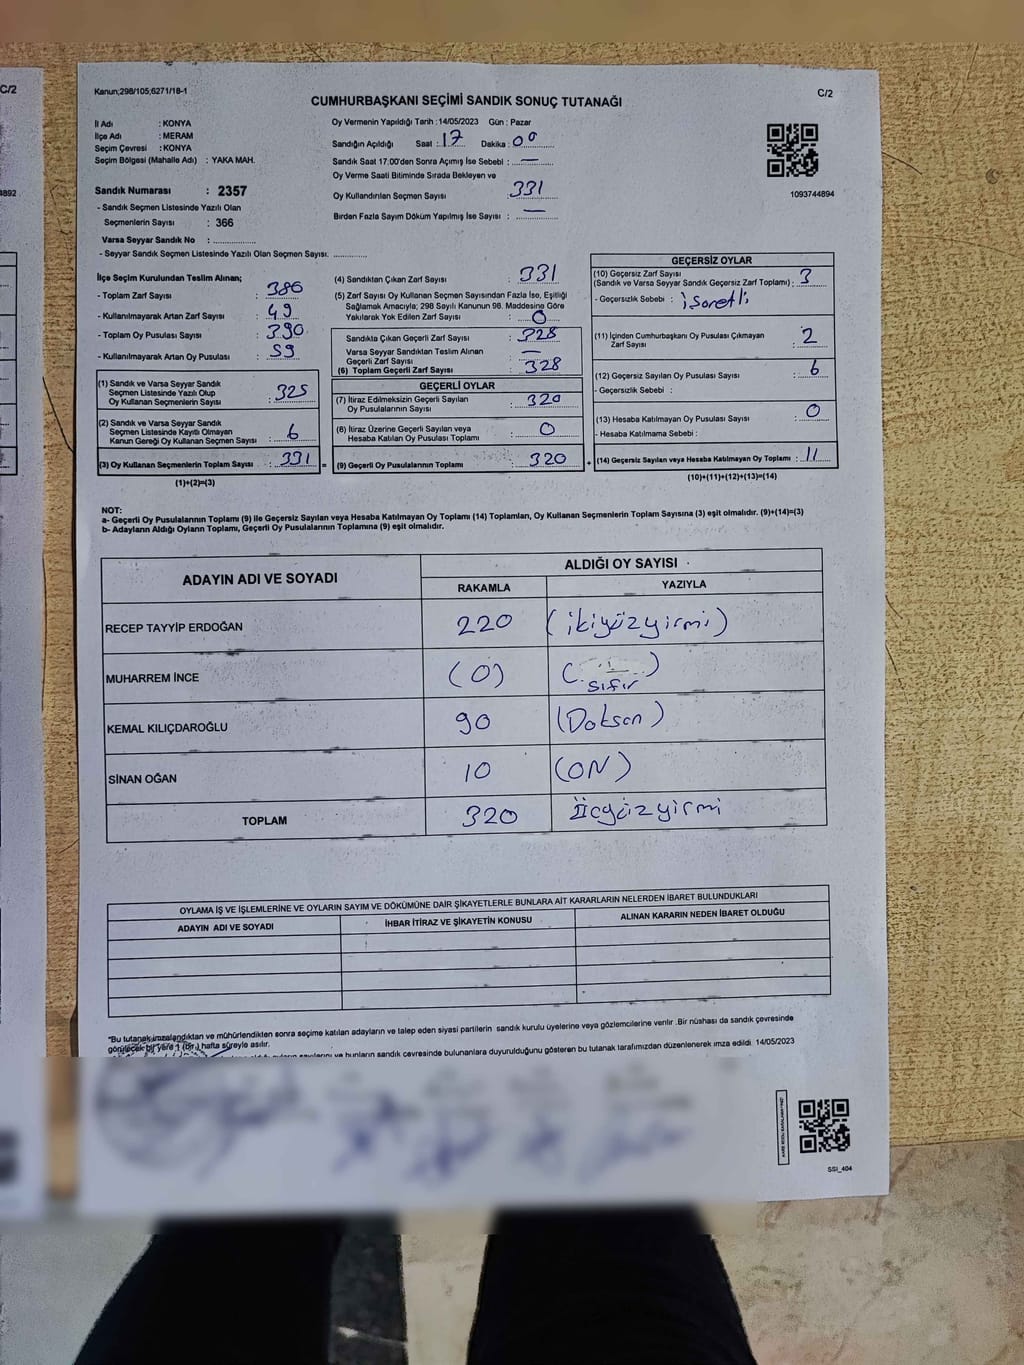 C/2
4892
Kanun;298/105;6271/18-1
CUMHURBAŞKANI SEÇİMİ SANDIK SONUÇ TUTANAĞI
C/2
İl Adı : KONYA
İlçe Adı : MERAM
Seçim Çevresi : KONYA
Seçim Bölgesi (Mahalle Adı) : YAKA MAH.
Sandık Numarası : 2357
- Sandık Seçmen Listesinde Yazılı Olan
Seçmenlerin Sayısı : 366
Varsa Seyyar Sandık No :
- Seyyar Sandık Seçmen Listesinde Yazılı Olan Seçmen Sayısı.
Oy Vermenin Yapıldığı Tarih :14/05/2023 Gün : Pazar
Sandığın Açıldığı Saat : 17 Dakika : 00
Sandık Saat 17:00'den Sonra Açımış İse Sebebi : —
Oy Verme Saati Bitiminde Sırada Bekleyen ve
Oy Kullandırılan Seçmen Sayısı : 331
Birden Fazla Sayım Döküm Yapılmış İse Sayısı : —
1093744894
İlçe Seçim Kurulundan Teslim Alınan;
- Toplam Zarf Sayısı : 380
- Kullanılmayarak Artan Zarf Sayısı : 49
- Toplam Oy Pusulası Sayısı : 390
- Kullanılmayarak Artan Oy Pusulası : 59
(1) Sandık ve Varsa Seyyar Sandık
Seçmen Listesinde Yazılı Olup
Oy Kullanan Seçmenlerin Sayısı : 325
(2) Sandık ve Varsa Seyyar Sandık
Seçmen Listesinde Kayıtlı Olmayan
Kanun Gereği Oy Kullanan Seçmen Sayısı : 6
(3) Oy Kullanan Seçmenlerin Toplam Sayısı : 331 =
(1)+(2)=(3)
(4) Sandıktan Çıkan Zarf Sayısı : 331
(5) Zarf Sayısı Oy Kullanan Seçmen Sayısından Fazla İse, Eşitliği
Sağlamak Amacıyla; 298 Sayılı Kanunun 98. Maddesine Göre
Yakılarak Yok Edilen Zarf Sayısı : 0
Sandıkta Çıkan Geçerli Zarf Sayısı : 328
Varsa Seyyar Sandıktan Teslim Alınan
Geçerli Zarf Sayısı : —
(6) Toplam Geçerli Zarf Sayısı : 328
GEÇERLİ OYLAR
(7) İtiraz Edilmeksizin Geçerli Sayılan
Oy Pusulalarının Sayısı : 320
(8) İtiraz Üzerine Geçerli Sayılan veya
Hesaba Katılan Oy Pusulası Toplamı : 0
(9) Geçerli Oy Pusulalarının Toplamı : 320 +
GEÇERSİZ OYLAR
(10) Geçersiz Zarf Sayısı
(Sandık ve Varsa Seyyar Sandık Geçersiz Zarf Toplamı) : 3
- Geçersizlik Sebebi : işaretli
(11) İçinden Cumhurbaşkanı Oy Pusulası Çıkmayan
Zarf Sayısı : 2
(12) Geçersiz Sayılan Oy Pusulası Sayısı : 6
- Geçersizlik Sebebi :
(13) Hesaba Katılmayan Oy Pusulası Sayısı : 0
- Hesaba Katılmama Sebebi :
(14) Geçersiz Sayılan veya Hesaba Katılmayan Oy Toplamı : 11
(10)+(11)+(12)+(13)=(14)
NOT:
a- Geçerli Oy Pusulalarının Toplamı (9) ile Geçersiz Sayılan veya Hesaba Katılmayan Oy Toplamı (14) Toplamları, Oy Kullanan Seçmenlerin Toplam Sayısına (3) eşit olmalıdır. (9)+(14)=(3)
b- Adayların Aldığı Oyların Toplamı, Geçerli Oy Pusulalarının Toplamına (9) eşit olmalıdır.
ADAYIN ADI VE SOYADI
ALDIĞI OY SAYISI
RAKAMLA YAZIYLA
RECEP TAYYİP ERDOĞAN 220 (ikiyüzyirmi)
MUHARREM İNCE (0) (sıfır)
KEMAL KILIÇDAROĞLU 90 (Doksan)
SİNAN OĞAN 10 (ON)
TOPLAM 320 üçyüzyirmi
OYLAMA İŞ VE İŞLEMLERİNE VE OYLARIN SAYIM VE DÖKÜMÜNE DAİR ŞİKAYETLERLE BUNLARA AİT KARARLARIN NELERDEN İBARET BULUNDUKLARI
ADAYIN ADI VE SOYADI
İHBAR İTİRAZ VE ŞİKAYETİN KONUSU
ALINAN KARARIN NEDEN İBARET OLDUĞU
"Bu tutanak imzalandıktan ve mühürlendikten sonra seçime katılan adayların ve talep eden siyasi partilerin sandık kurulu üyelerine veya gözlemcilerine verilir .Bir nüshası da sandık çevresinde
görülecek bir yere 1 (bir.) hafta süreyle asılır.
sayılarını ve bunların sandık çevresinde bulunanlara duyurulduğunu gösteren bu tutanak tarafımızdan düzenlenerek imza edildi. 14/05/2023
SSİ_404